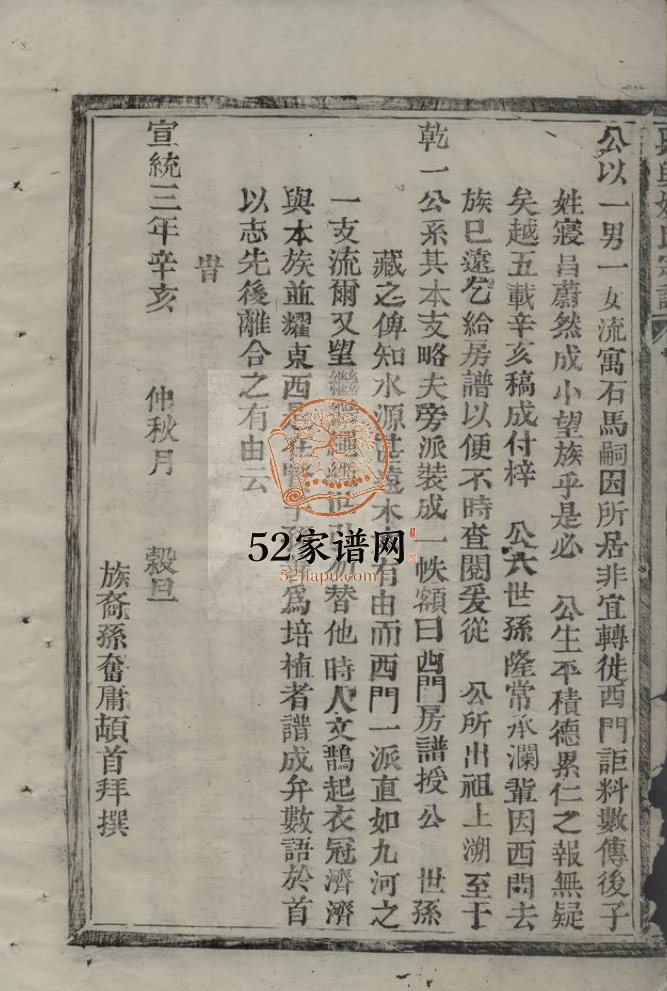 公以一男一女流寓石馬嗣因所居非宜轉徙西門詎料數傳後子
姓寖昌蔚然成小望族乎是必 公生平積德累仁之報無疑
矣越五載辛亥稿成付梓 公六世孫隆常承瀾輩因西門去
族已遠乞給房譜以便不時查閱爰從 公所出祖上溯至十
乾一公系其本支略夫旁派裝成一帙額曰西門房譜授公 世孫
藏之俾知水源甚遠木有由而西門一派直如九河之
一支流爾又望繼繼繩繩世引勿替他時人文鵲起衣冠濟濟
與本族並耀東西是在賢子孫為培植者譜成弁數語於首
以志先後離合之有由云
旹
宣統三年辛亥 仲秋月 穀旦
族裔孫奮庸頡首拜撰
52家譜网
52jiapu.com